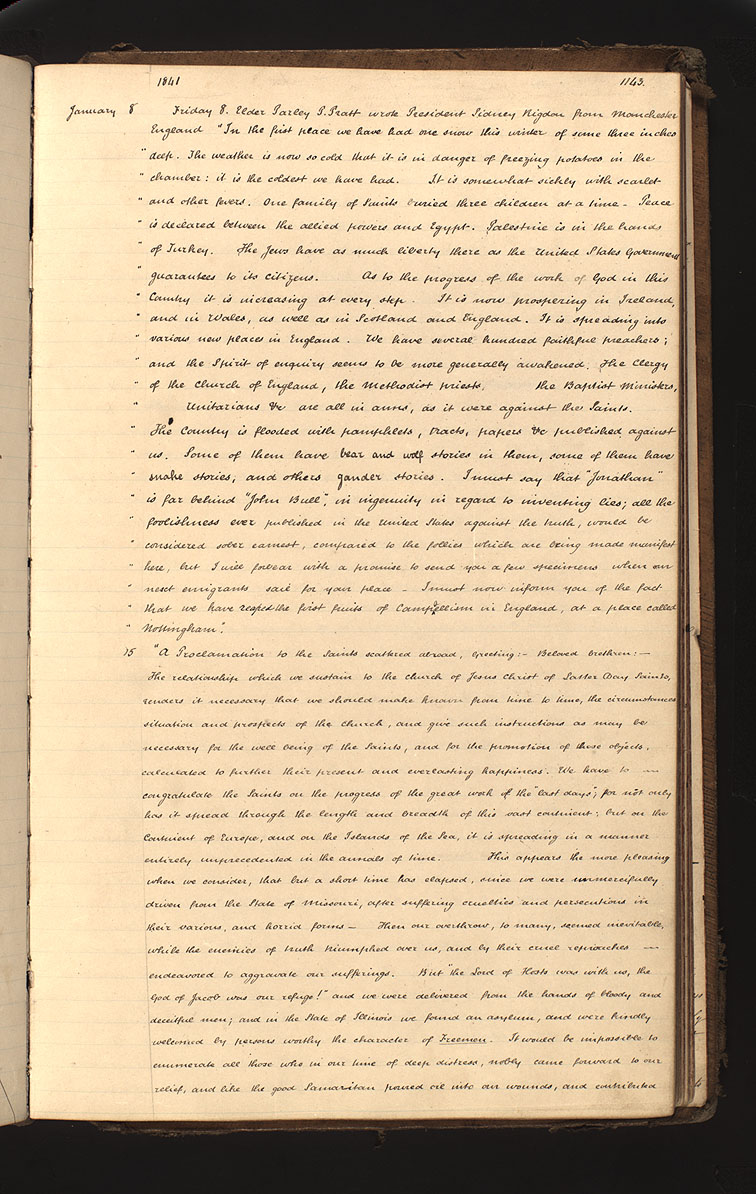 1841 1143.
January 8 Friday 8. Elder Parley P. Pratt wrote President Sidney Rigdon from Manchester
England "In the first place we have had one snow this winter of some three inches
" deep. The weather is now so cold that it is in danger of freezing potatoes in the
" chamber: it is the coldest we have had. It is somewhat sickly with scarlet
" and other fevers. One family of Saints buried three children at a time - Peace
" is declared between the allied powers and Egypt. Palestine is in the hands
" of Turkey. The Jews have as much liberty there as the United States Government
" guarantees to its citizens. As to the progress of the work of God in this
" Country it is increasing at every step. It is now prospering in Ireland,
" and in Wales, as well as in Scotland and England. It is spreading into
" various new places in England. We have several hundred faithful preachers;
" and the Spirit of enquiry seems to be more generally awakened. The Clergy
" of the Church of England, the Methodist priests, the Baptist Ministers,
" Unitarians &c are all in arms, as it were against the Saints.
" The Country is flooded with pamphlets, tracts, papers &c published against
" us. Some of them have bear and wolf stories in them, some of them have
" snake stories, and others gander stories. I must say that "Jonathan"
" is far behind "John Bull", in ingenuity in regard to inventing lies; all the
" foolishness ever published in the United States against the truth, would be
" considered sober earnest, compared to the follies which are being made manifest
" here, but I will forbear with a promise to send you a few specimens when our
" next emigrants sail for your place - I must now inform you of the fact
" that we have reaped the first fruits of Campbellism in England, at a place called
" Nottingham".
15 "A Proclamation to the Saints scattered abroad, Greeting:- Beloved Brethren:-
The relationship which we sustain to the Church of Jesus Christ of Latter Day Saints,
renders it necessary that we should make known from time to time, the circumstances
situation and prospects of the Church, and give such instructions as may be
necessary for the well being of the Saints, and for the promotion of those objects,
calculated to further their present and everlasting happiness. We have to —
congratulate the Saints on the progress of the great work of the "last days"; for not only
has it spread through the length and breadth of this vast continent; but on the
Continent of Europe, and on the Islands of the Sea, it is spreading in a manner
entirely unprecedented in the annals of time. This appears the more pleasing
when we consider, that but a short time has elapsed, since we were unmercifully
driven from the State of Missouri, after suffering cruelties and persecutions in
their various, and horrid forms — Then our overthrow, to many, seemed inevitable,
while the enemies of truth triumphed over us, and by their cruel reproaches —
endeavored to aggravate our sufferings. But "the Lord of Hosts was with us, the
God of Jacob was our refuge!" and we were delivered from the hands of bloody and
deceitful men; and in the State of Illinois we found an asylum, and were kindly
welcomed by persons worthy the character of Freemen. It would be impossible to
enumerate all those who in our time of deep distress, nobly came forward to our
relief, and like the good Samaritan poured oil into our wounds, and contributed